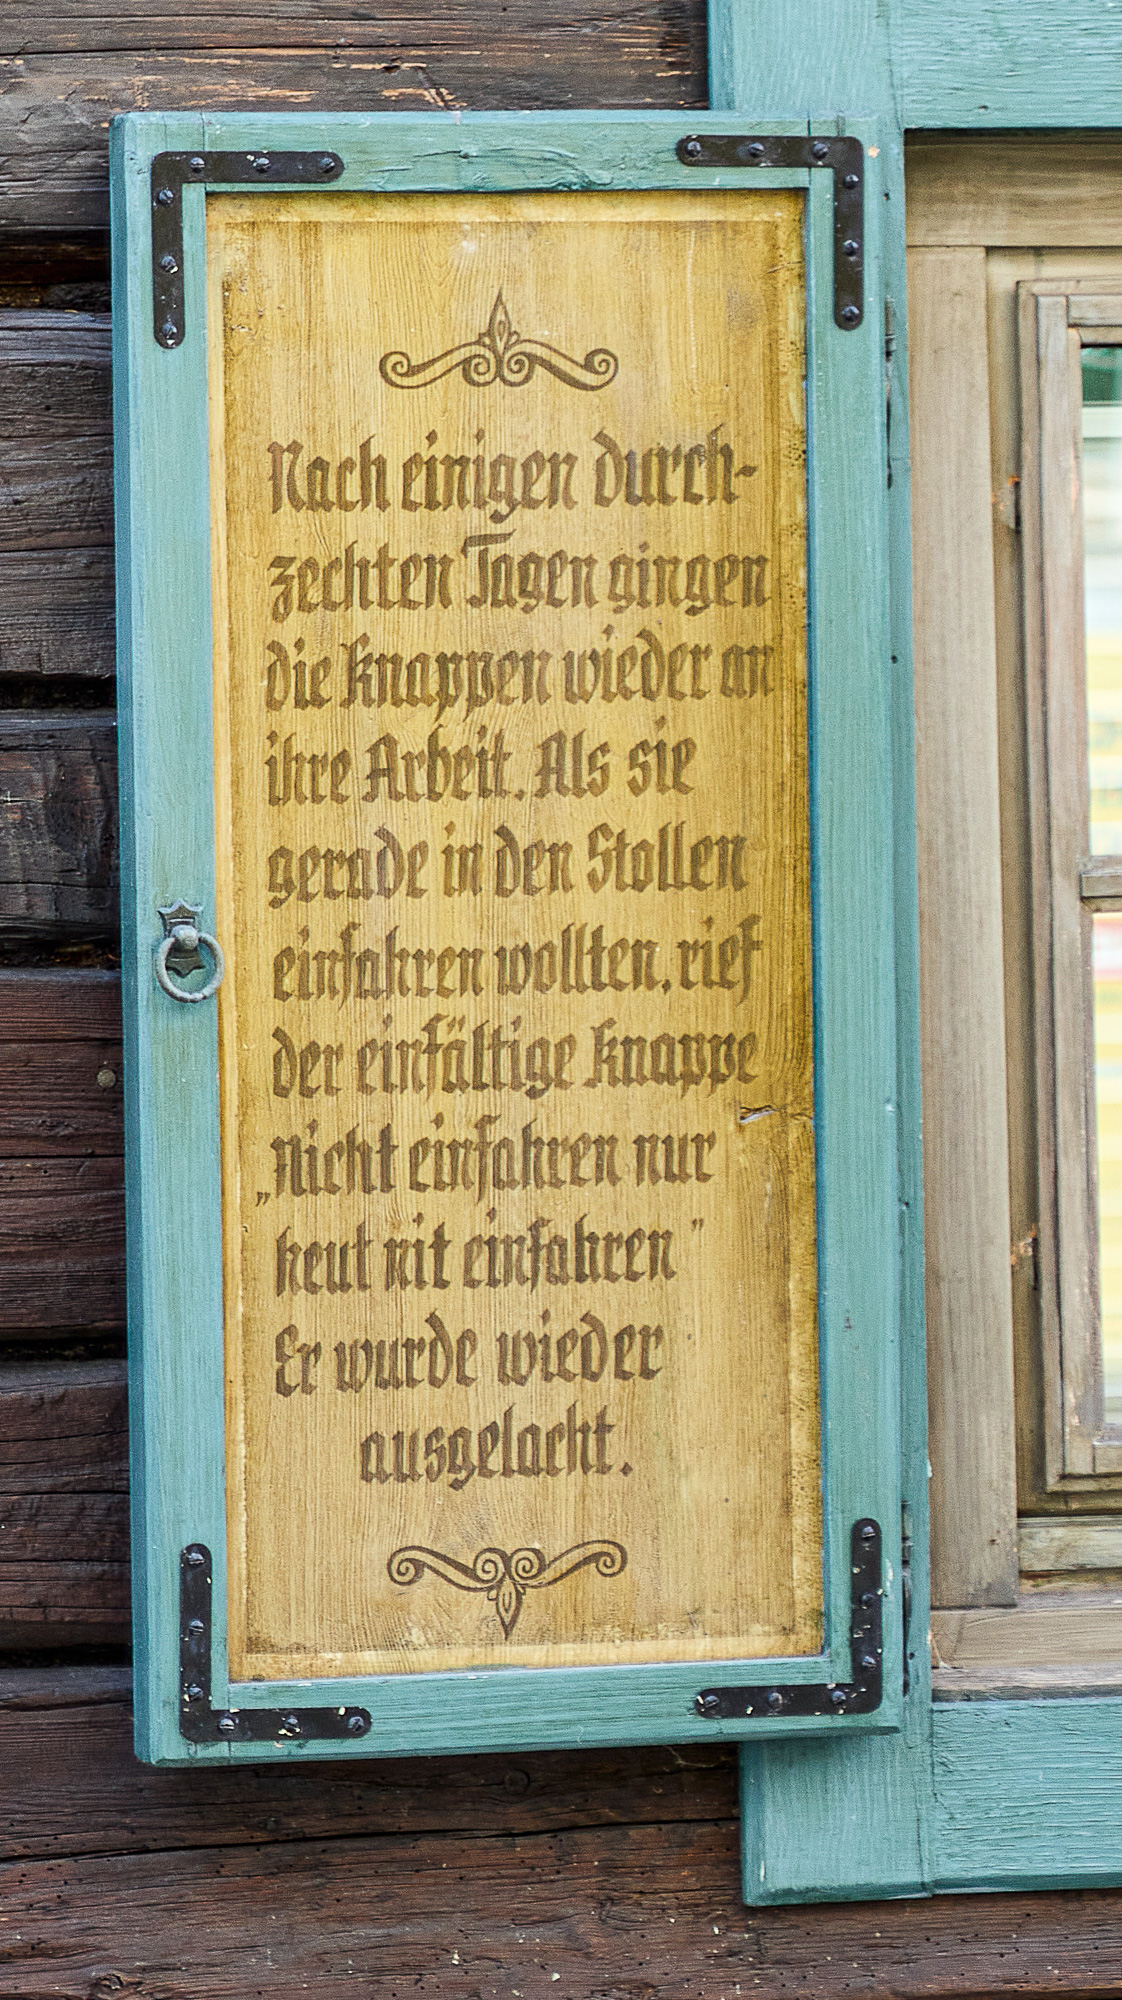 Nach einigen durch-
zechten Tagen gingen
die Knappen wieder an
ihre Arbeit. Als sie
gerade in den Stollen
einfahren wollten, rief
der einfältige Knappe
„Nicht einfahren nur
heut nit einfahren"
Er wurde wieder
ausgelacht.